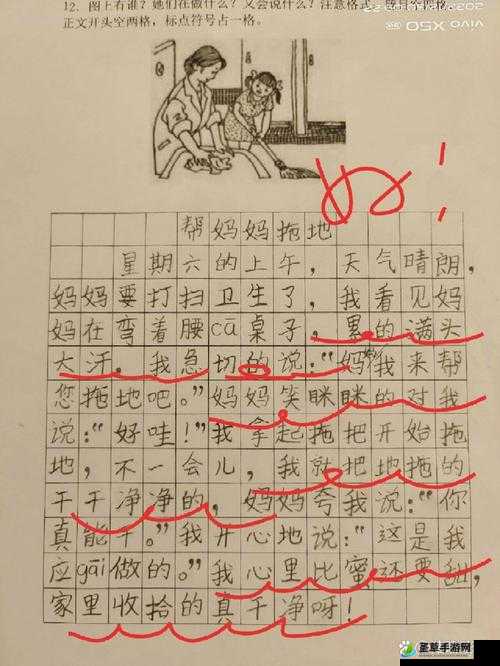 12. 图上有谁?她们在做什么?又会说什么?注意格式,题目空四格,
正文开头空两格,标点符号占一格。
vivo X50
好!
帮妈妈拖地
星期六的上午,天气晴朗,
妈妈要打扫卫生了,我看见妈
妈在弯着腰cā桌子,累的满头
大汗。我急切的说:“妈妈我来帮
您拖地吧。”妈妈笑眯眯的对我
说:“好哇!”我拿起拖把开始拖
地,不一会儿,我就把地拖的
干干净净的,妈妈夸我说:“你
真能干。”我开心地说:“这是我
应gāi做的。”我心里比蜜还要甜,
家里收拾的真干净呀!
圣草手游网